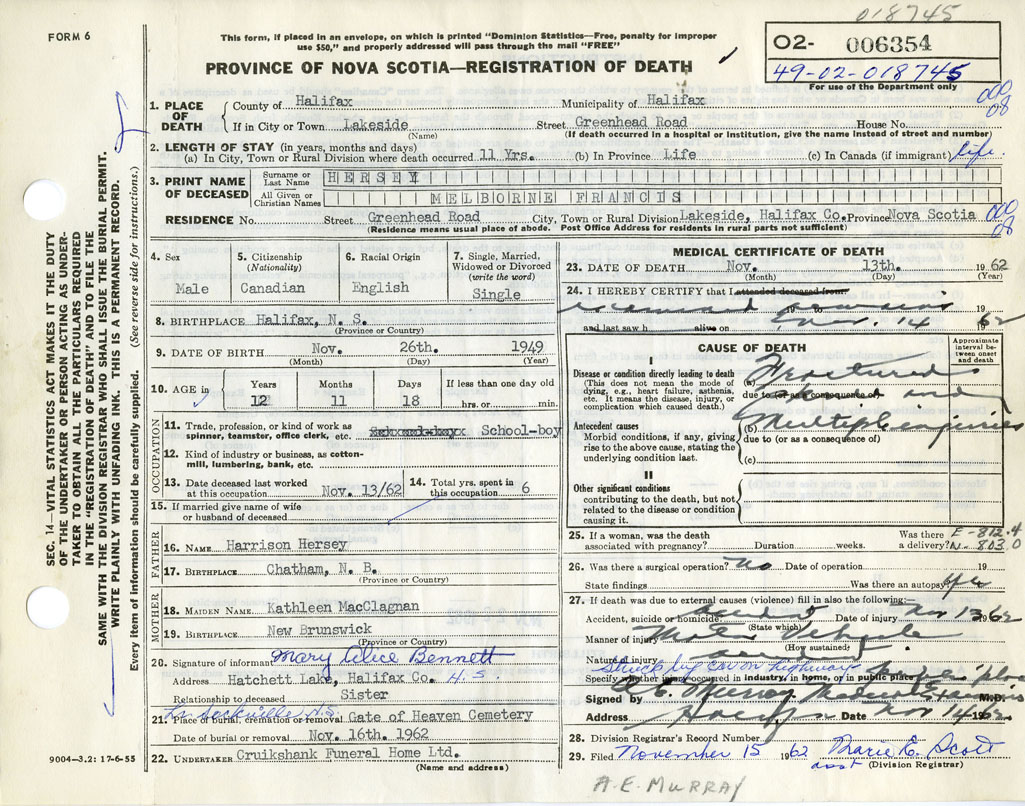 018745
FORM 6
This form, if placed in an envelope, on which is printed "Dominion Statistics—Free, penalty for improper
use $50," and properly addressed will pass through the mail "FREE"
O2- 006354
49-02-018745
For use of the Department only
PROVINCE OF NOVA SCOTIA—REGISTRATION OF DEATH
SEC. 14—VITAL STATISTICS ACT MAKES IT THE DUTY
OF THE UNDERTAKER OR PERSON ACTING AS UNDER-
TAKER TO OBTAIN ALL THE PARTICULARS REQUIRED
IN THE "REGISTRATION OF DEATH" AND TO FILE THE
SAME WITH THE DIVISION REGISTRAR WHO SHALL ISSUE THE BURIAL PERMIT.
WRITE PLAINLY WITH UNFADING INK. THIS IS A PERMANENT RECORD.
Every item of information should be carefully supplied. (See reverse side for instructions.)
1. PLACE OF DEATH County of Halifax Municipality of Halifax 000
08
If in City or Town Lakeside Street Greenhead Road House No.
(Name) (If death occurred in a hospital or institution, give the name instead of street and number)
2. LENGTH OF STAY (in years, months and days)
(a) In City, Town or Rural Division where death occurred 11 Yrs. (b) In Province Life (c) In Canada (if immigrant) life.
3. PRINT NAME OF DECEASED Surname or Last Name HERSEY
All Given or Christian Names MELBORNE FRANCIS
RESIDENCE No. Street Greenhead Road City, Town or Rural Division Lakeside, Halifax Co. Province Nova Scotia 000
08
(Residence means usual place of abode. Post Office Address for residents in rural parts not sufficient)
4. Sex 5. Citizenship (Nationality) 6. Racial Origin 7. Single, Married, Widowed or Divorced (write the word)
Male Canadian English Single
8. BIRTHPLACE Halifax, N. S.
(Province or Country)
9. DATE OF BIRTH Nov. 26th. 1949
(Month) (Day) (Year)
10. AGE in Years Months Days If less than one day old
12 11 18 hrs. or min.
OCCUPATION
11. Trade, profession, or kind of work as
spinner, teamster, office clerk, etc. School-boy
12. Kind of industry or business, as cotton-
mill, lumbering, bank, etc.
13. Date deceased last worked at this occupation Nov. 13/62 14. Total yrs. spent in this occupation 6
15. If married give name of wife
or husband of deceased
FATHER
16. NAME Harrison Hersey
17. BIRTHPLACE Chatham, N. B.
(Province or Country)
MOTHER
18. MAIDEN NAME Kathleen MacClagnan
19. BIRTHPLACE New Brunswick
(Province or Country)
20. Signature of informant Mary Alice Bennett
Address Hatchett Lake, Halifax Co. N.S.
Relationship to deceased Sister
21. Place of burial, cremation or removal Gate of Heaven Cemetery
Date of burial or removal Nov. 16th. 1962
22. UNDERTAKER Cruikshank Funeral Home Ltd.
(Name and address)
9004—3.2: 17-6-55
MEDICAL CERTIFICATE OF DEATH
23. DATE OF DEATH Nov. 13th. 1962
(Month) (Day) (Year)
24. I HEREBY CERTIFY that I attended deceased from
19 to 19
and last saw h alive on Nov. 14 1962
CAUSE OF DEATH
Approximate interval between onset and death
I
Disease or condition directly leading to death
(This does not mean the mode of dying, e.g., heart failure, asthenia, etc. It means the disease, injury, or complication which caused death.)
(a) Fractured
due to (or as a consequence of)
Antecedent causes
Morbid conditions, if any, giving rise to the above cause, stating the underlying condition last.
(b) Multiple injuries
due to (or as a consequence of)
(c)
II
Other significant conditions
contributing to the death, but not related to the disease or condition causing it.
25. If a woman, was the death associated with pregnancy? Duration weeks. Was there a delivery? E-812.4
N-803.0
26. Was there a surgical operation? No Date of operation 19
State findings Was there an autopsy?
27. If death was due to external causes (violence) fill in also the following:—
Accident, suicide or homicide. accident Date of injury Nov 13 1962
(State which)
Manner of injury Motor Vehicle
(How sustained)
Nature of injury accident
struck by car on highway
Specify whether injury occurred in industry, in home, or in public place
Signed by Murray M.D.
Address Date Nov 14 1962
28. Division Registrar's Record Number
29. Filed November 15 1962 Marie E. Scott
asst (Division Registrar)
A.E. MURRAY